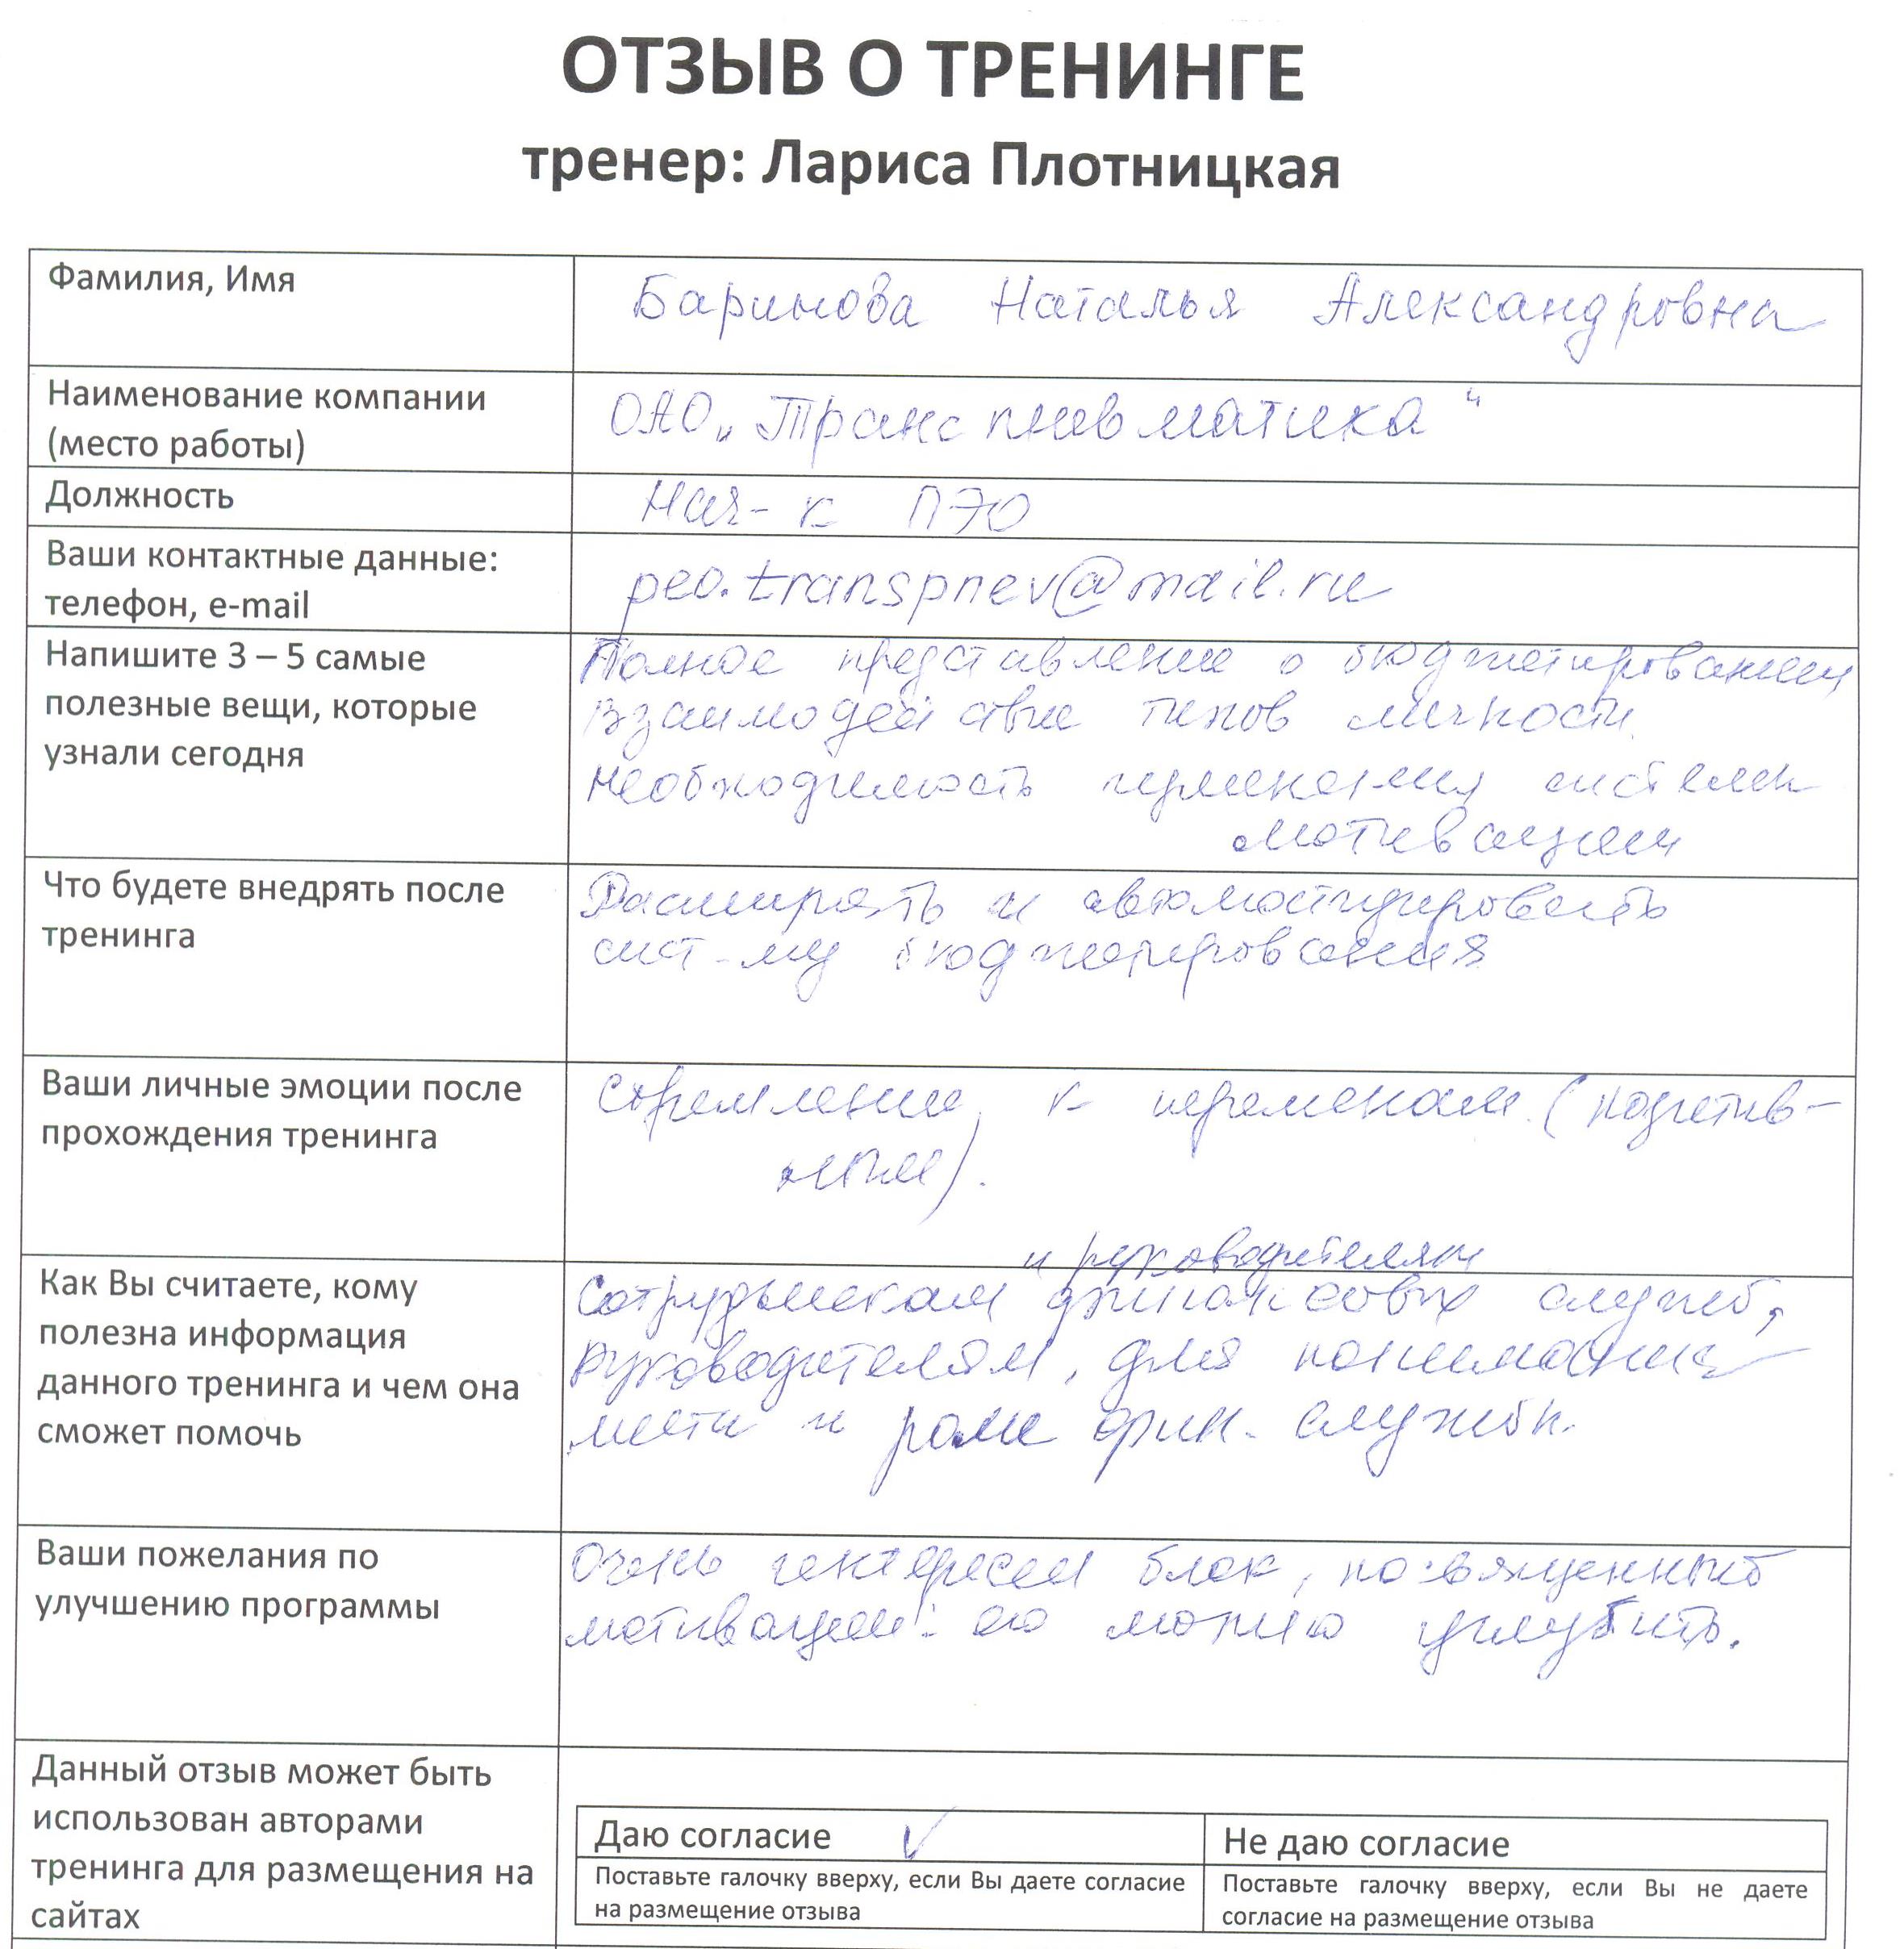 ОТЗЫВ О ТРЕНИНГЕ
тренер: Лариса Плотницкая
Фамилия, Имя
Баринова Наталья Александровна
Наименование компании
(место работы)
ОАО „Транспневматика"
Должность
Нач-к ПЭО
Ваши контактные данные:
телефон, e-mail
peo.transpnev@mail.ru
Напишите 3 – 5 самые
полезные вещи, которые
узнали сегодня
Полное представление о бюджетировании
Взаимодействие типов личности.
Необходимость применения системы
мотивации
Что будете внедрять после
тренинга
Расширять и автоматизировать
сист-му бюджетирования
Ваши личные эмоции после
прохождения тренинга
Стремление к переменам (позитив-
ным).
Как Вы считаете, кому
полезна информация
данного тренинга и чем она
сможет помочь
и руководителям
Сотрудникам финансовых служб,
руководителям, для понимания
места и роли фин. службы.
Ваши пожелания по
улучшению программы
Очень интересен блок, посвященный
мотивации: его можно углубить.
Данный отзыв может быть
использован авторами
тренинга для размещения на
сайтах
Даю согласие ✓
Не даю согласие
Поставьте галочку вверху, если Вы даете согласие
на размещение отзыва
Поставьте галочку вверху, если Вы не даете
согласие на размещение отзыва